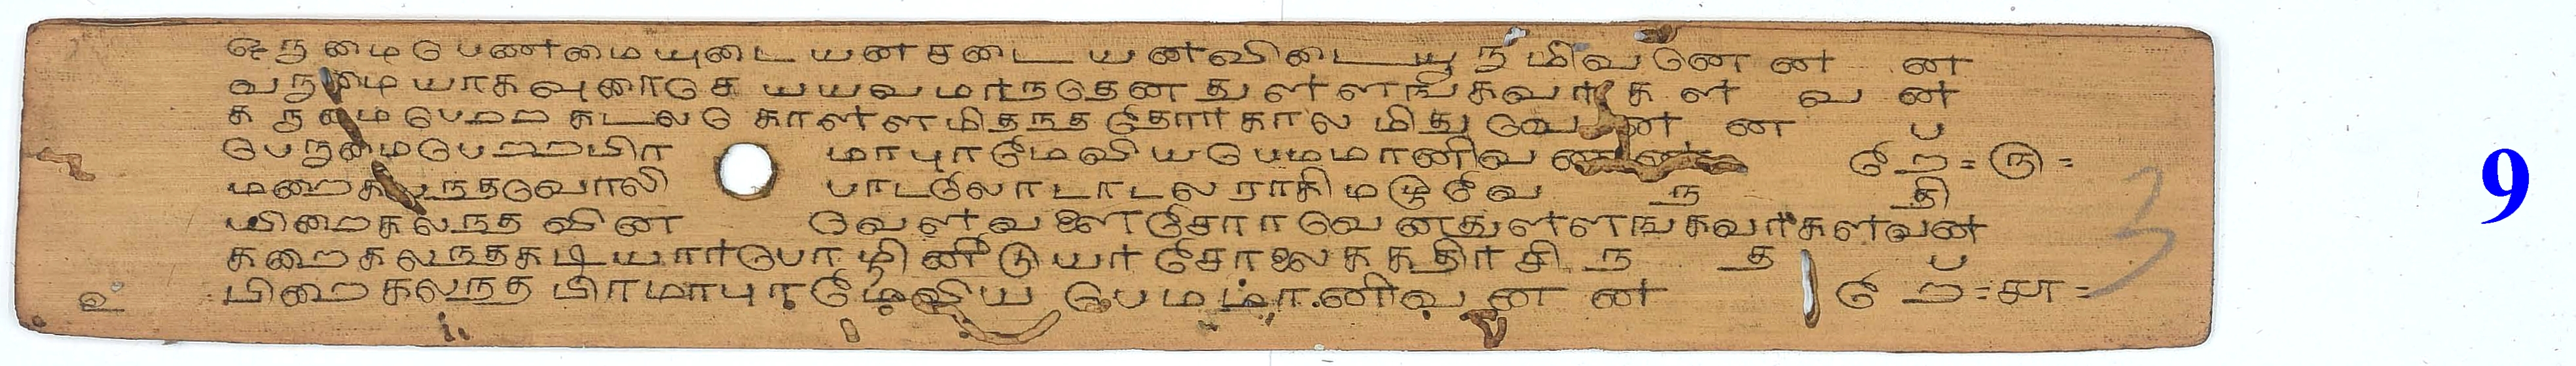 ஒருமைபெணமையுடையனசடையனவிடையூருமிவனென ன
வருமையாகவுரைசெ யயவமாநதெனதுளளஙகவாகள வ ன
கருமைபெறற கடலகொளளமிதநததோரகால மிதுவெ ன ன ப
பெருமைபெறறபிர மாபுரமேவியபெமமானிவ னன றே = ௫ =
மறைகலநதவொலி பாடலோடாடல ராகிமழுவே ந தி
யிறைகலநத வின வெளவளைசோரவெனதுளளஙகவரகளவன
கறைகலநதகடியாரபொழினீடுயரசோலைககதிரசி ந த ப
பிறைகலநத பிரமாபுரமேவிய பெமமானிவ ன ன றே = ௬ =
உ
9
3